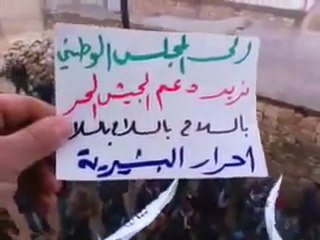 الى المجلس الوطني
نريد دعم الجيش الحر
بالسلاح بالسلاح بالسلا
احرار البشيرية